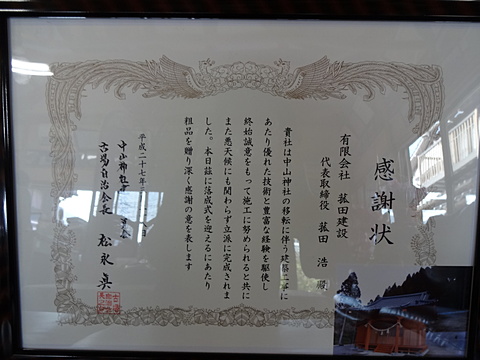 感謝状
有限会社 菰田建設
代表取締役 菰田 浩 殿
貴社は中山神社の移転に伴う建築工事に
あたり優れた技術と豊富な経験を駆使し
終始誠意をもって施工に努められると共に
また悪天候にも関わらず立派に完成されま
した。本日茲に落成式を迎えるにあたり
粗品を贈り深く感謝の意を表します
平成二十七年
中山神社
自治会長 松永 眞